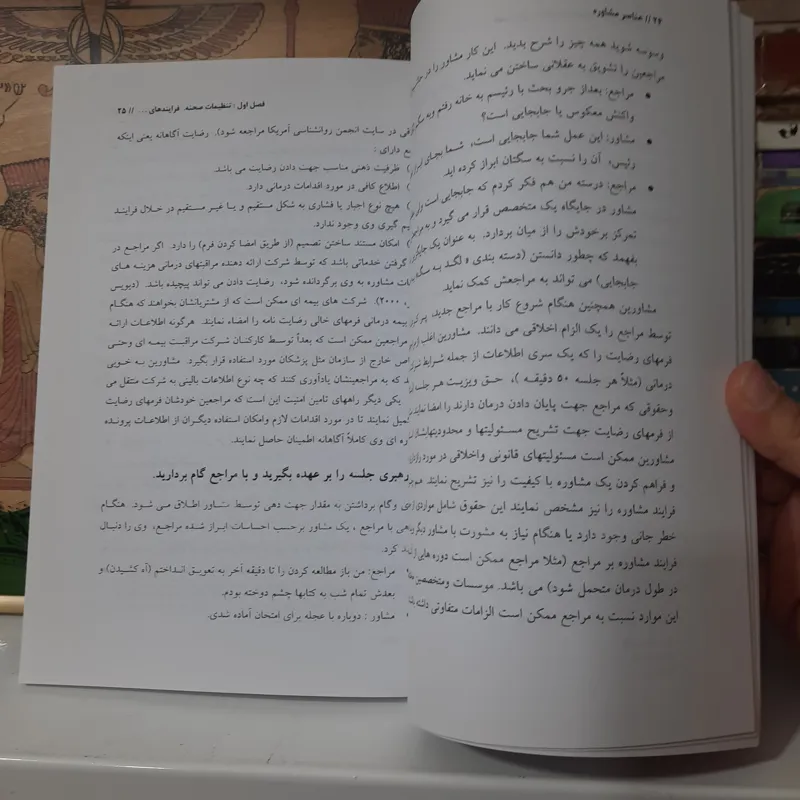 ۲۴ // عناصر مشاوره
وسوسه شوید همه چیز را شرح بدید. این کار مشاور را در
مراجعین را تشویق به عقلانی ساختن می نماید.
• مراجع: بعداز جرو بحث با رئیسم به خانه رفتم و به سگم
واکنش معکوس یا جابجایی است؟
• مشاور: این عمل شما جابجایی است، شما بجای
رئیس، آن را نسبت به سگتان ابراز کرده اید
• مراجع: درسته من هم فکر کردم که جابجایی است ولی
مشاور در جایگاه یک متخصص قرار می گیرد و به
تمرکز برخودش را از میان بردارد. به عنوان یک
بفهمد که چطور دانستن (دسته بندی » لگد به
جابجایی) می تواند به مراجعش کمک نماید
مشاورین همچنین هنگام شروع کار با مراجع جدید، پر
توسط مراجع را یک الزام اخلاقی می دانند. مشاورین اغلب از
فرمهای رضایت را که یک سری اطلاعات از جمله شرایط
درمانی (مثلاً هر جلسه ۵۰ دقیقه )، حق ویزیت هر جلسه
وحقوقی که مراجع جهت پایان دادن درمان دارند را امضا نمایند
از فرمهای رضایت جهت تشریح مسئولیتها و محدودیتهایشان
مشاورین ممکن است مسئولیتهای قانونی واخلاقی در مورد رازداری
و فراهم کردن یک مشاوره با کیفیت را نیز تشریح نمایند هم
فرایند مشاوره را نیز مشخص نمایند این حقوق شامل مواردی از
خطر جانی وجود دارد یا هنگام نیاز به مشورت با مشاور دیگر
فرایند مشاوره بر مراجع (مثلا مراجع ممکن است دوره هایی از
در طول درمان متحمل شود) می باشد. موسسات ومتخصصین
این موارد نسبت به مراجع ممکن است الزامات متفاوتی داشته
فصل اول : تنظیمات صحنه. فرایندهای .... // ۲۵
در سایت انجمن روانشناسی آمریکا مراجعه شود). رضایت آگاهانه یعنی اینکه
دارای :
) ظرفیت ذهنی مناسب جهت دادن رضایت می باشد.
) اطلاع کافی در مورد اقدامات درمانی دارد.
) هیچ نوع اجبار یا فشاری به شکل مستقیم و یا غیر مستقیم در خلال فرایند
گیری وی وجود ندارد.
) امکان مستند ساختن تصمیم (از طریق امضا کردن فرم) را دارد. اگر مراجع در
گرفتن خدماتی باشد که توسط شرکت ارائه دهنده مراقبتهای درمانی هزینه های
مشاوره به وی برگردانده شود، رضایت دادن می تواند پیچیده باشد. (دیویس
۲۰۰۰). شرکت های بیمه ای ممکن است که از مشتریانشان بخواهند که هنگام
بیمه درمانی فرمهای خالی رضایت نامه را امضاء نمایند. هرگونه اطلاعات ارائه
مراجعین ممکن است که بعداً توسط کارکنان شرکت مراقبت بیمه ای وحتی
خارج از سازمان مثل پزشکان مورد استفاده قرار بگیرد. مشاورین به خوبی
که به مراجعینشان یادآوری کنند که چه نوع اطلاعات بالینی به شرکت منتقل می
یکی دیگر راههای تامین امنیت این است که مراجعین خودشان فرمهای رضایت
نمایند تا در مورد اقدامات لازم وامکان استفاده دیگران از اطلاعات پرونده
ای وی کاملاً آگاهانه اطمینان حاصل نمایند.
رهبری جلسه را بر عهده بگیرید و با مراجع گام بردارید.
وگام برداشتن به مقدار جهت دهی توسط مشاور اطلاق می شود. هنگام
با مراجع ، یک مشاور برحسب احساسات ابراز شده مراجع، وی را دنبال
کرد.
مراجع: من باز مطالعه کردن را تا دقیقه آخر به تعویق انداختم (آه کشیدن) و
بعدش تمام شب به کتابها چشم دوخته بودم.
مشاور : دوباره با عجله برای امتحان آماده شدی.